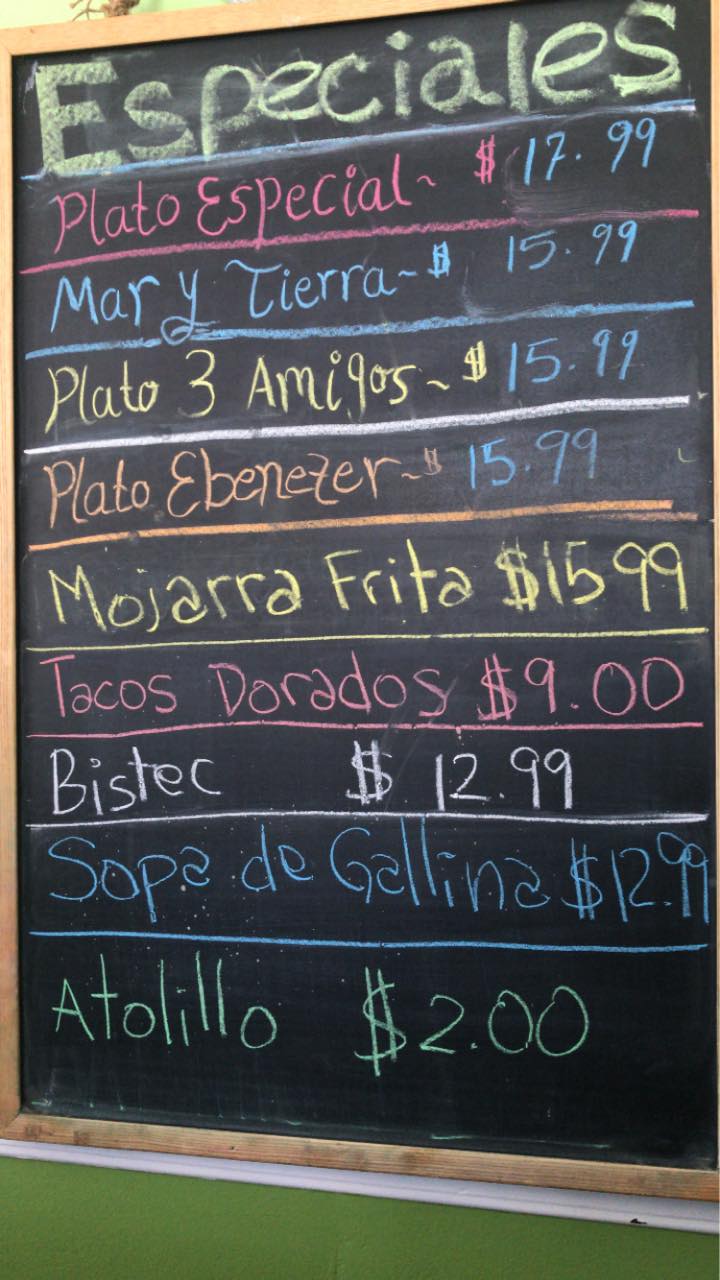 Especiales
Plato Especial~ $ 17.99
Mar y Tierra~$ 15.99
Plato 3 Amigos~$ 15.99
Plato Ebenezer~$ 15.99
Mojarra Frita $15 99
Tacos Dorados $9.00
Bistec $ 12.99
Sopa de Gallina $12.99
Atolillo $2.00